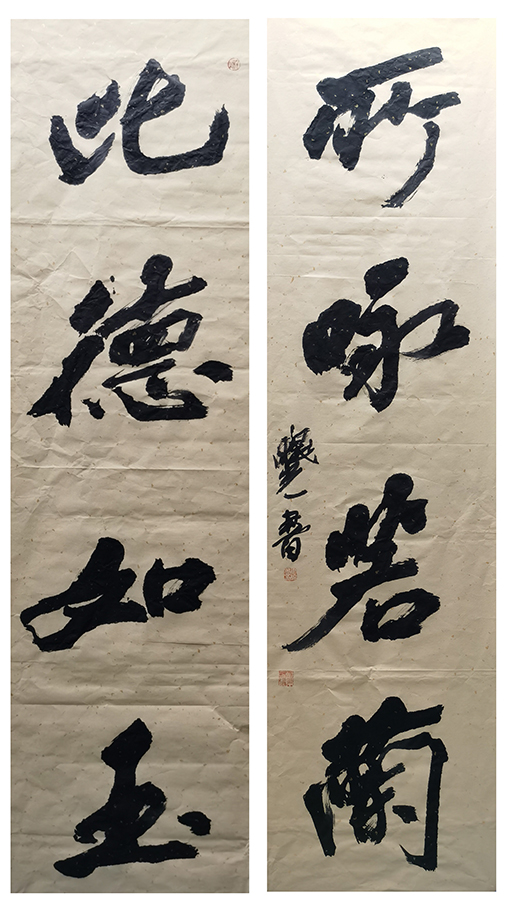 此德如玉
所咏若蘭
書